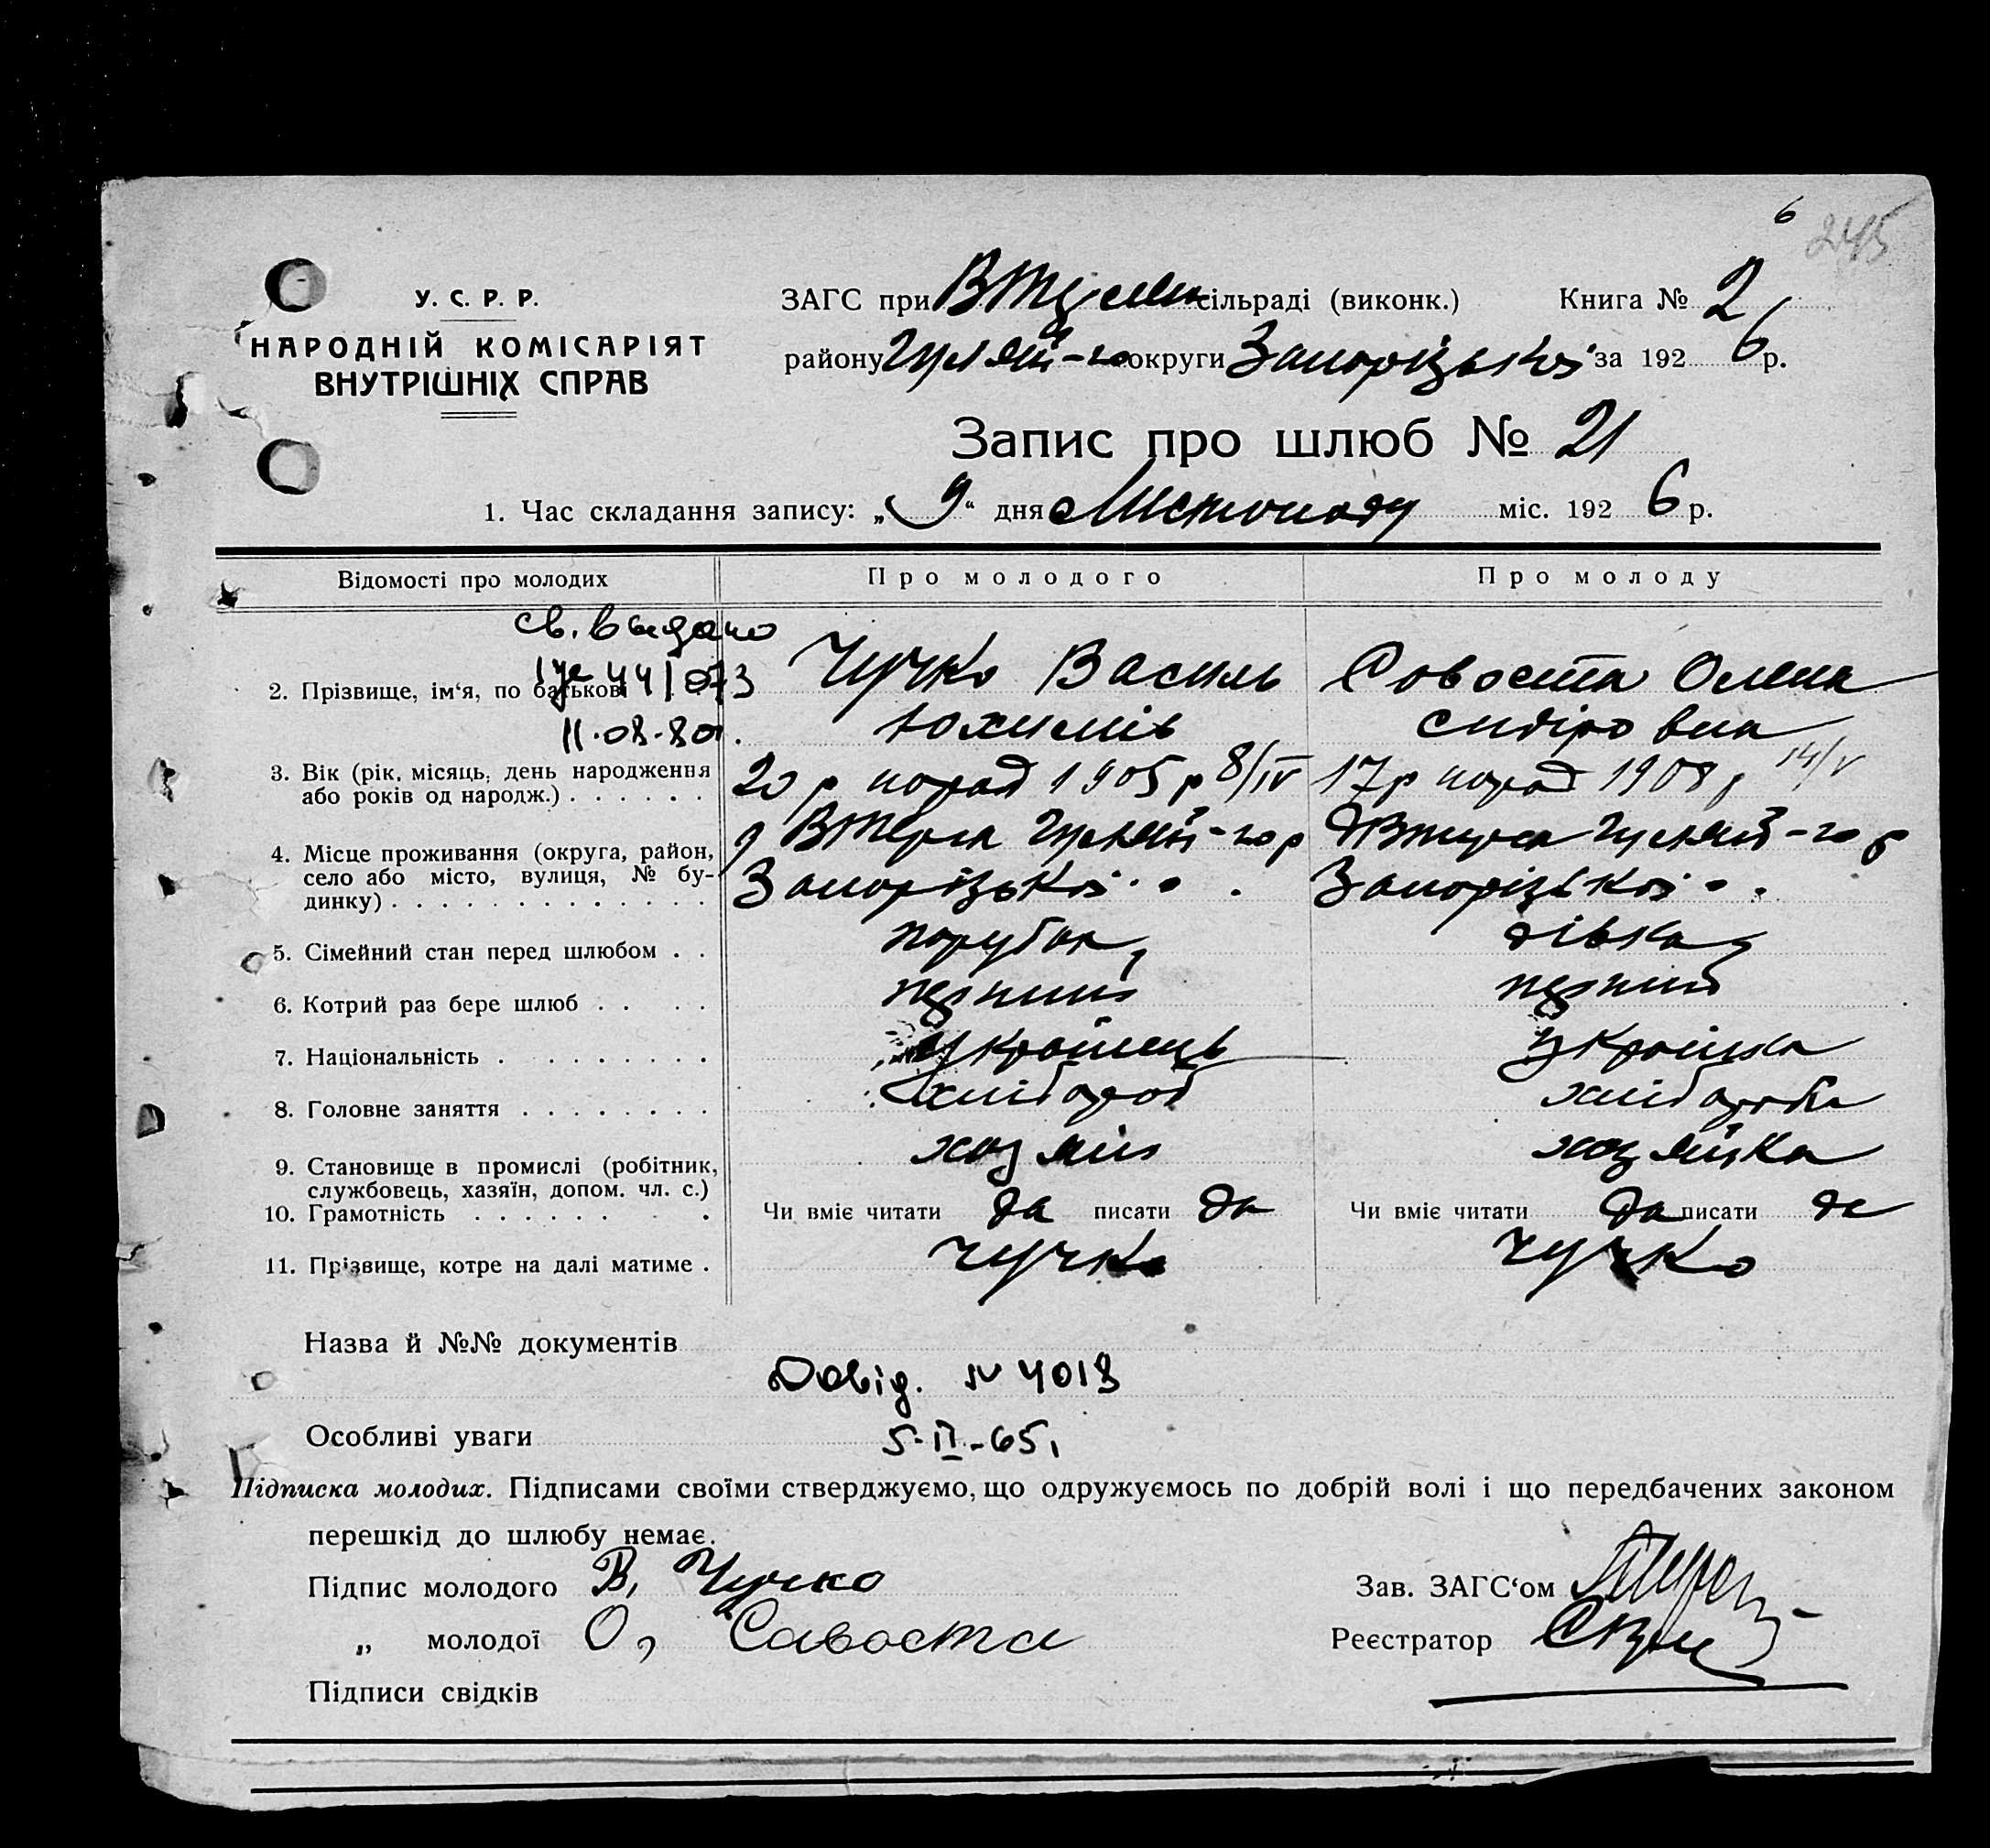 6
245
У. С. Р. Р.
НАРОДНІЙ КОМІСАРІЯТ
ВНУТРІШНІХ СПРАВ
ЗАГС при сільраді (виконк.) Книга № 2
району Гуляй-го округи Запорізької за 1926 р.
Запис про шлюб № 21
1. Час складання запису: „9“ дня Листопаду міс. 1926 р.
Відомості про молодих
Про молодого
Про молоду
св. выдано
441073
11.08.80
2. Прізвище, ім‘я, по батькові
Чучко Василь
Юхимів
Совоста Олена
Сидіровна
3. Вік (рік, місяць, день народження
або років од народж.)
20 р 1905 р 8/IV
17 р 1908 р 14/V
4. Місце проживання (округа, район,
село або місто, вулиця, № бу-
динку)
Гуляй-го р
Запорізької
Гуляй-го р
Запорізької
5. Сімейний стан перед шлюбом
парубок
дівка
6. Котрий раз бере шлюб
перший
перший
7. Національність
українець
українка
8. Головне заняття
хлібороб
хлібороба
9. Становище в промислі (робітник,
службовець, хазяїн, допом. чл. с.)
хозяїн
хозяйка
10. Грамотність
Чи вміє читати да писати да
Чи вміє читати да писати да
11. Прізвище, котре на далі матиме
Чучко
Чучко
Назва й №№ документів
Довід. № 4013
Особливі уваги
5-II-65
Підписка молодих. Підписами своїми стверджуємо, що одружуємось по добрій волі і що передбачених законом
перешкід до шлюбу немає.
Підпис молодого В. Чучко
Зав. ЗАГС‘ом
„ молодої О, Савоста
Реєстратор
Підписи свідків